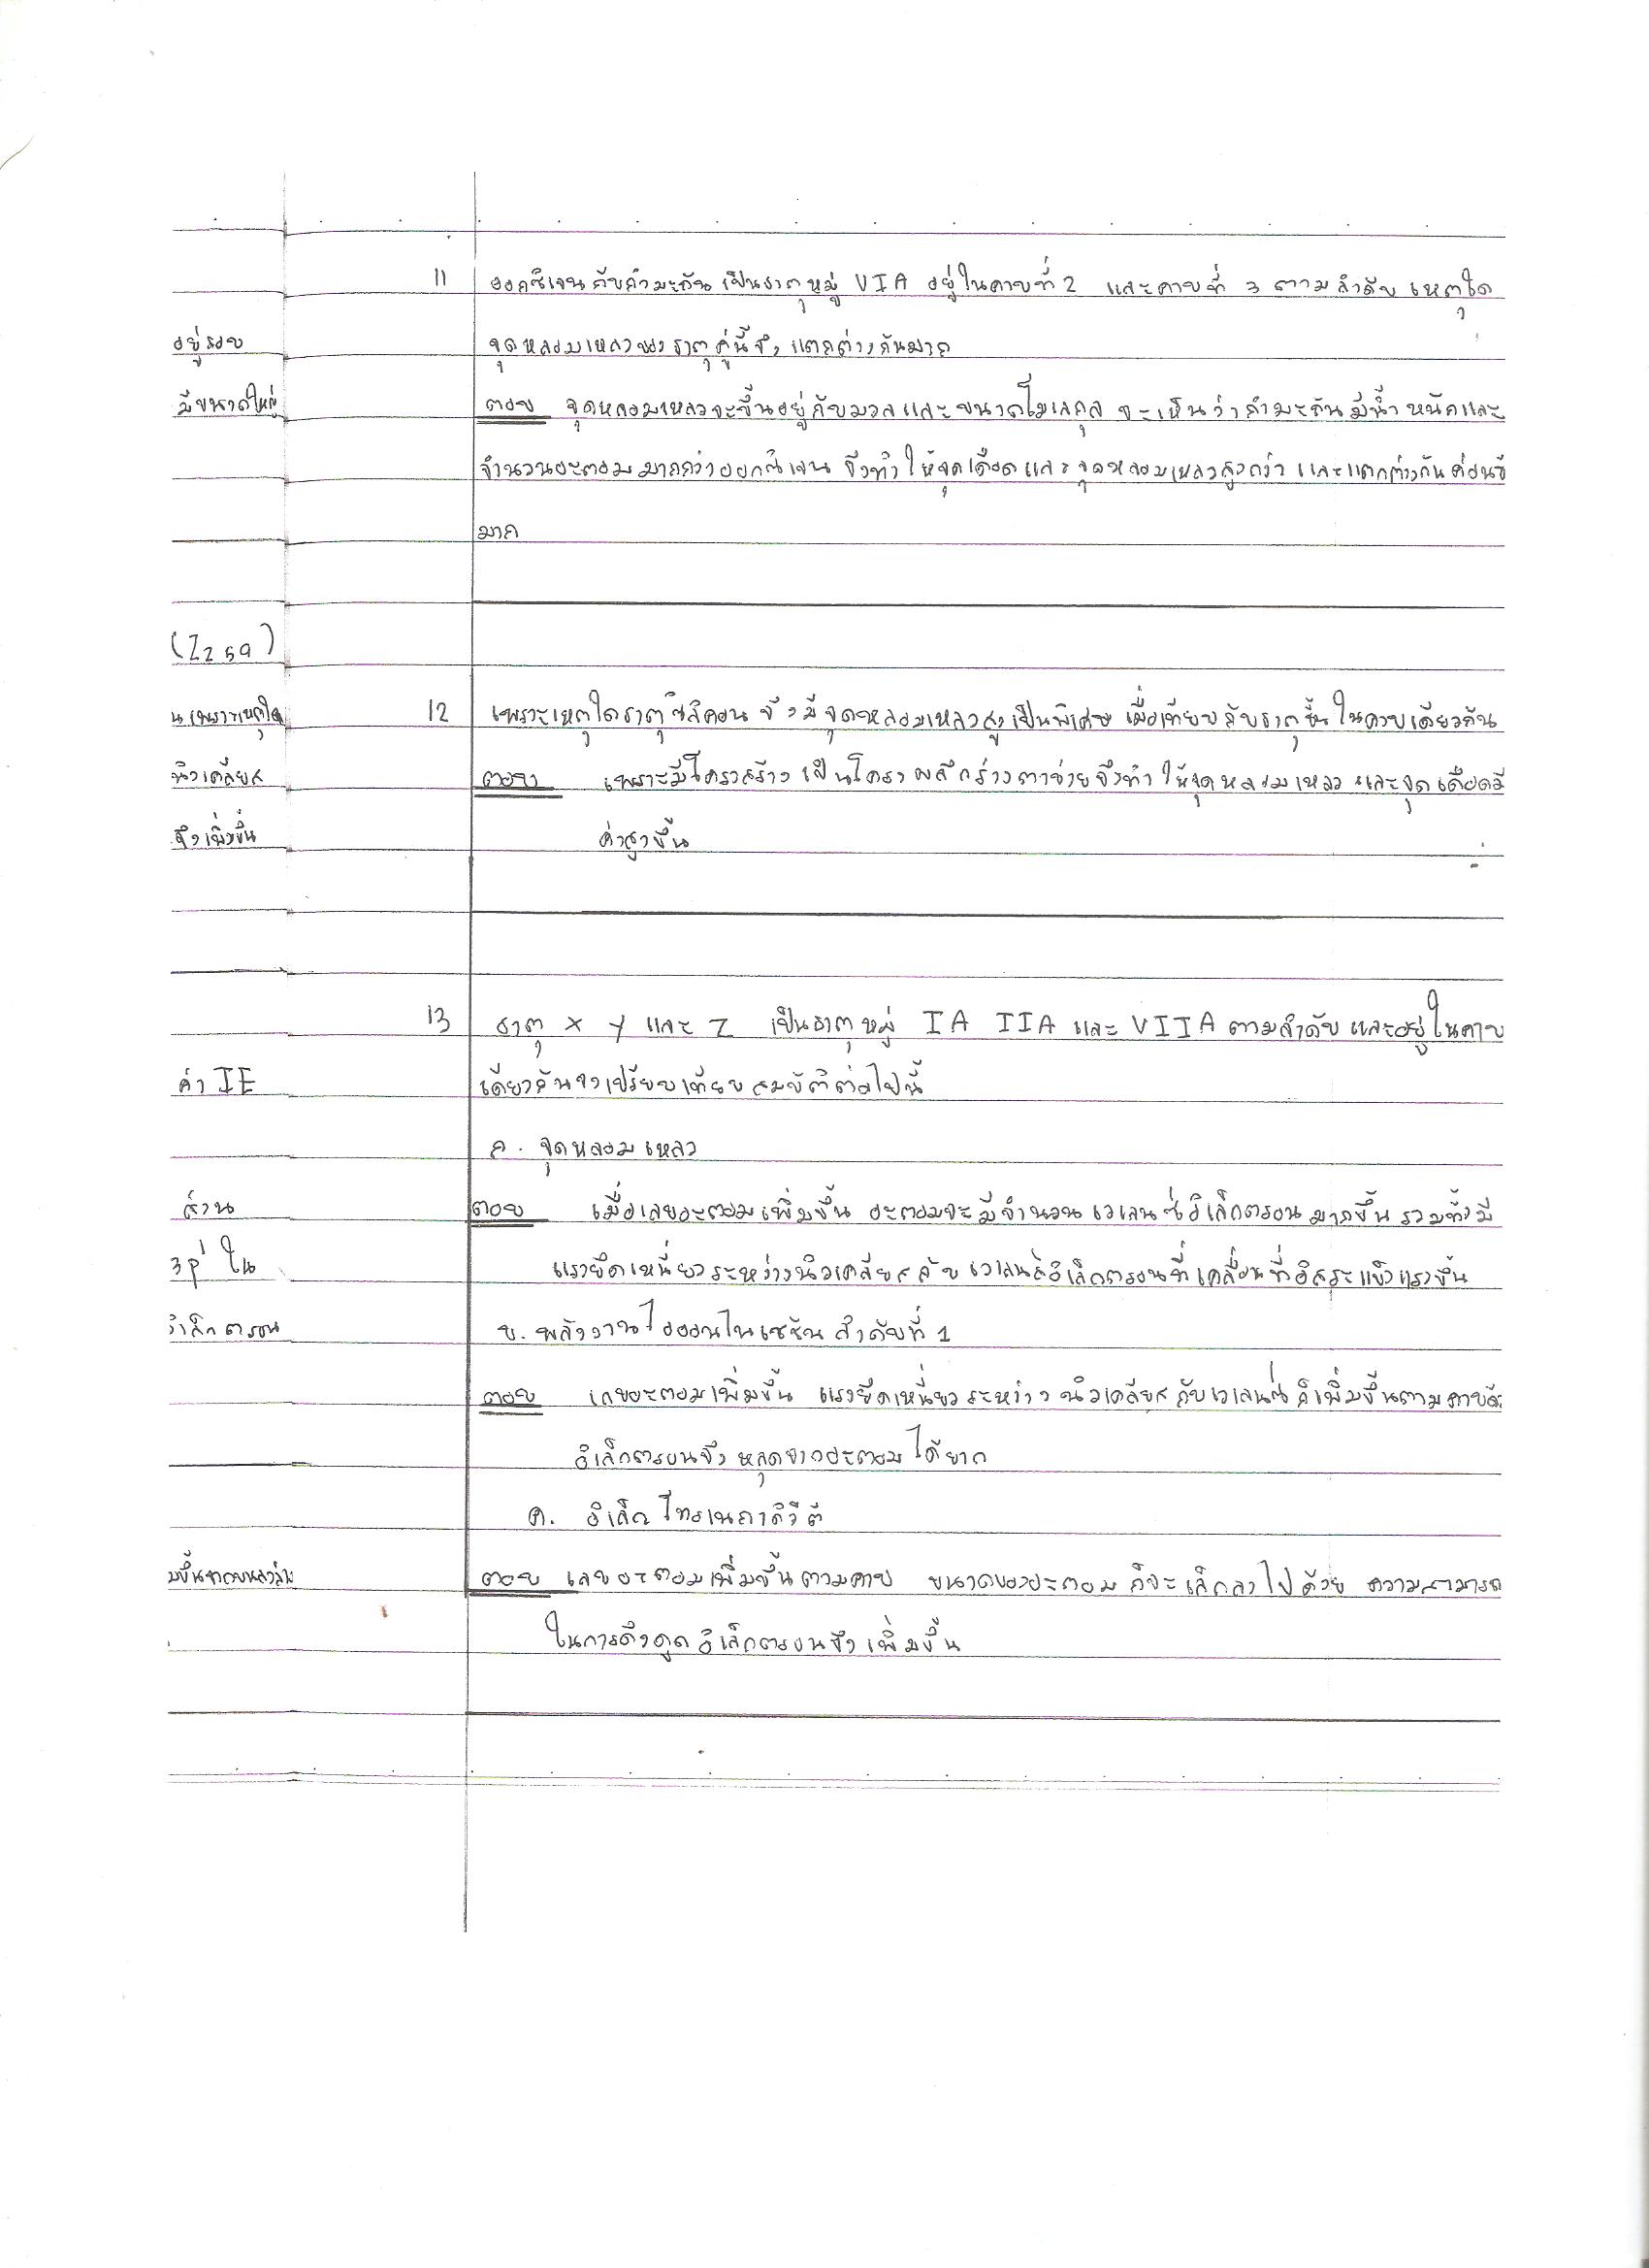 11 ออกซิเจนกับกำมะถันเป็นธาตุหมู่ VIA อยู่ในคาบที่ 2 และคาบที่ 3 ตามลำดับ เหตุใด
อยู่รอบ จุดหลอมเหลวของธาตุคู่นี้จึงแตกต่างกันมาก
มีขนาดใหญ่ ตอบ จุดหลอมเหลวจะขึ้นอยู่กับมวลและขนาดโมเลกุล จะเห็นว่ากำมะถันมีน้ำหนักและ
จำนวนอะตอมมากกว่าออกซิเจน จึงทำให้จุดเดือดและจุดหลอมเหลวสูงกว่า และแตกต่างกันค่อนข้
มาก
(Z=59)
น เพราะเหตุใด 12 เพราะเหตุใดธาตุซิลิคอน จึงมีจุดหลอมเหลวสูงเป็นพิเศษ เมื่อเทียบกับธาตุอื่นในคาบเดียวกัน
นิวเคลียส ตอบ เพราะมีโครงสร้างเป็นโครงผลึกร่างตาข่ายจึงทำให้จุดหลอมเหลว และจุดเดือดมี
จึงเพิ่มขึ้น ค่าสูงขึ้น
13 ธาตุ X Y และ Z เป็นธาตุหมู่ IA IIA และ VIIA ตามลำดับ และอยู่ในคาบ
ค่า IE เดียวกันจงเปรียบเทียบสมบัติต่อไปนี้
ก. จุดหลอมเหลว
ส่วน ตอบ เมื่อเลขอะตอมเพิ่มขึ้น อะตอมจะมีจำนวนเวเลนซ์อิเล็กตรอนมากขึ้น รวมทั้งมี
3p ใน แรงยึดเหนี่ยวระหว่างนิวเคลียสกับเวเลนซ์อิเล็กตรอนที่เคลื่อนที่อิสระแข็งแรงขึ้น
อิเล็กตรอน ข. พลังงานไอออนไนเซชันลำดับที่ 1
ตอบ เลขอะตอมเพิ่มขึ้น แรงยึดเหนี่ยวระหว่างนิวเคลียสกับเวเลนซ์ก็เพิ่มขึ้นตามคาบด้
อิเล็กตรอนจึงหลุดจากอะตอมได้ยาก
ค. อิเล็กโทรเนกาติวิตี
ตอบ เลขอะตอมเพิ่มขึ้นตามคาบ ขนาดของอะตอมก็จะเล็กลงไปด้วย ความสามารถ
ในการดึงดูดอิเล็กตรอนจึงเพิ่มขึ้น